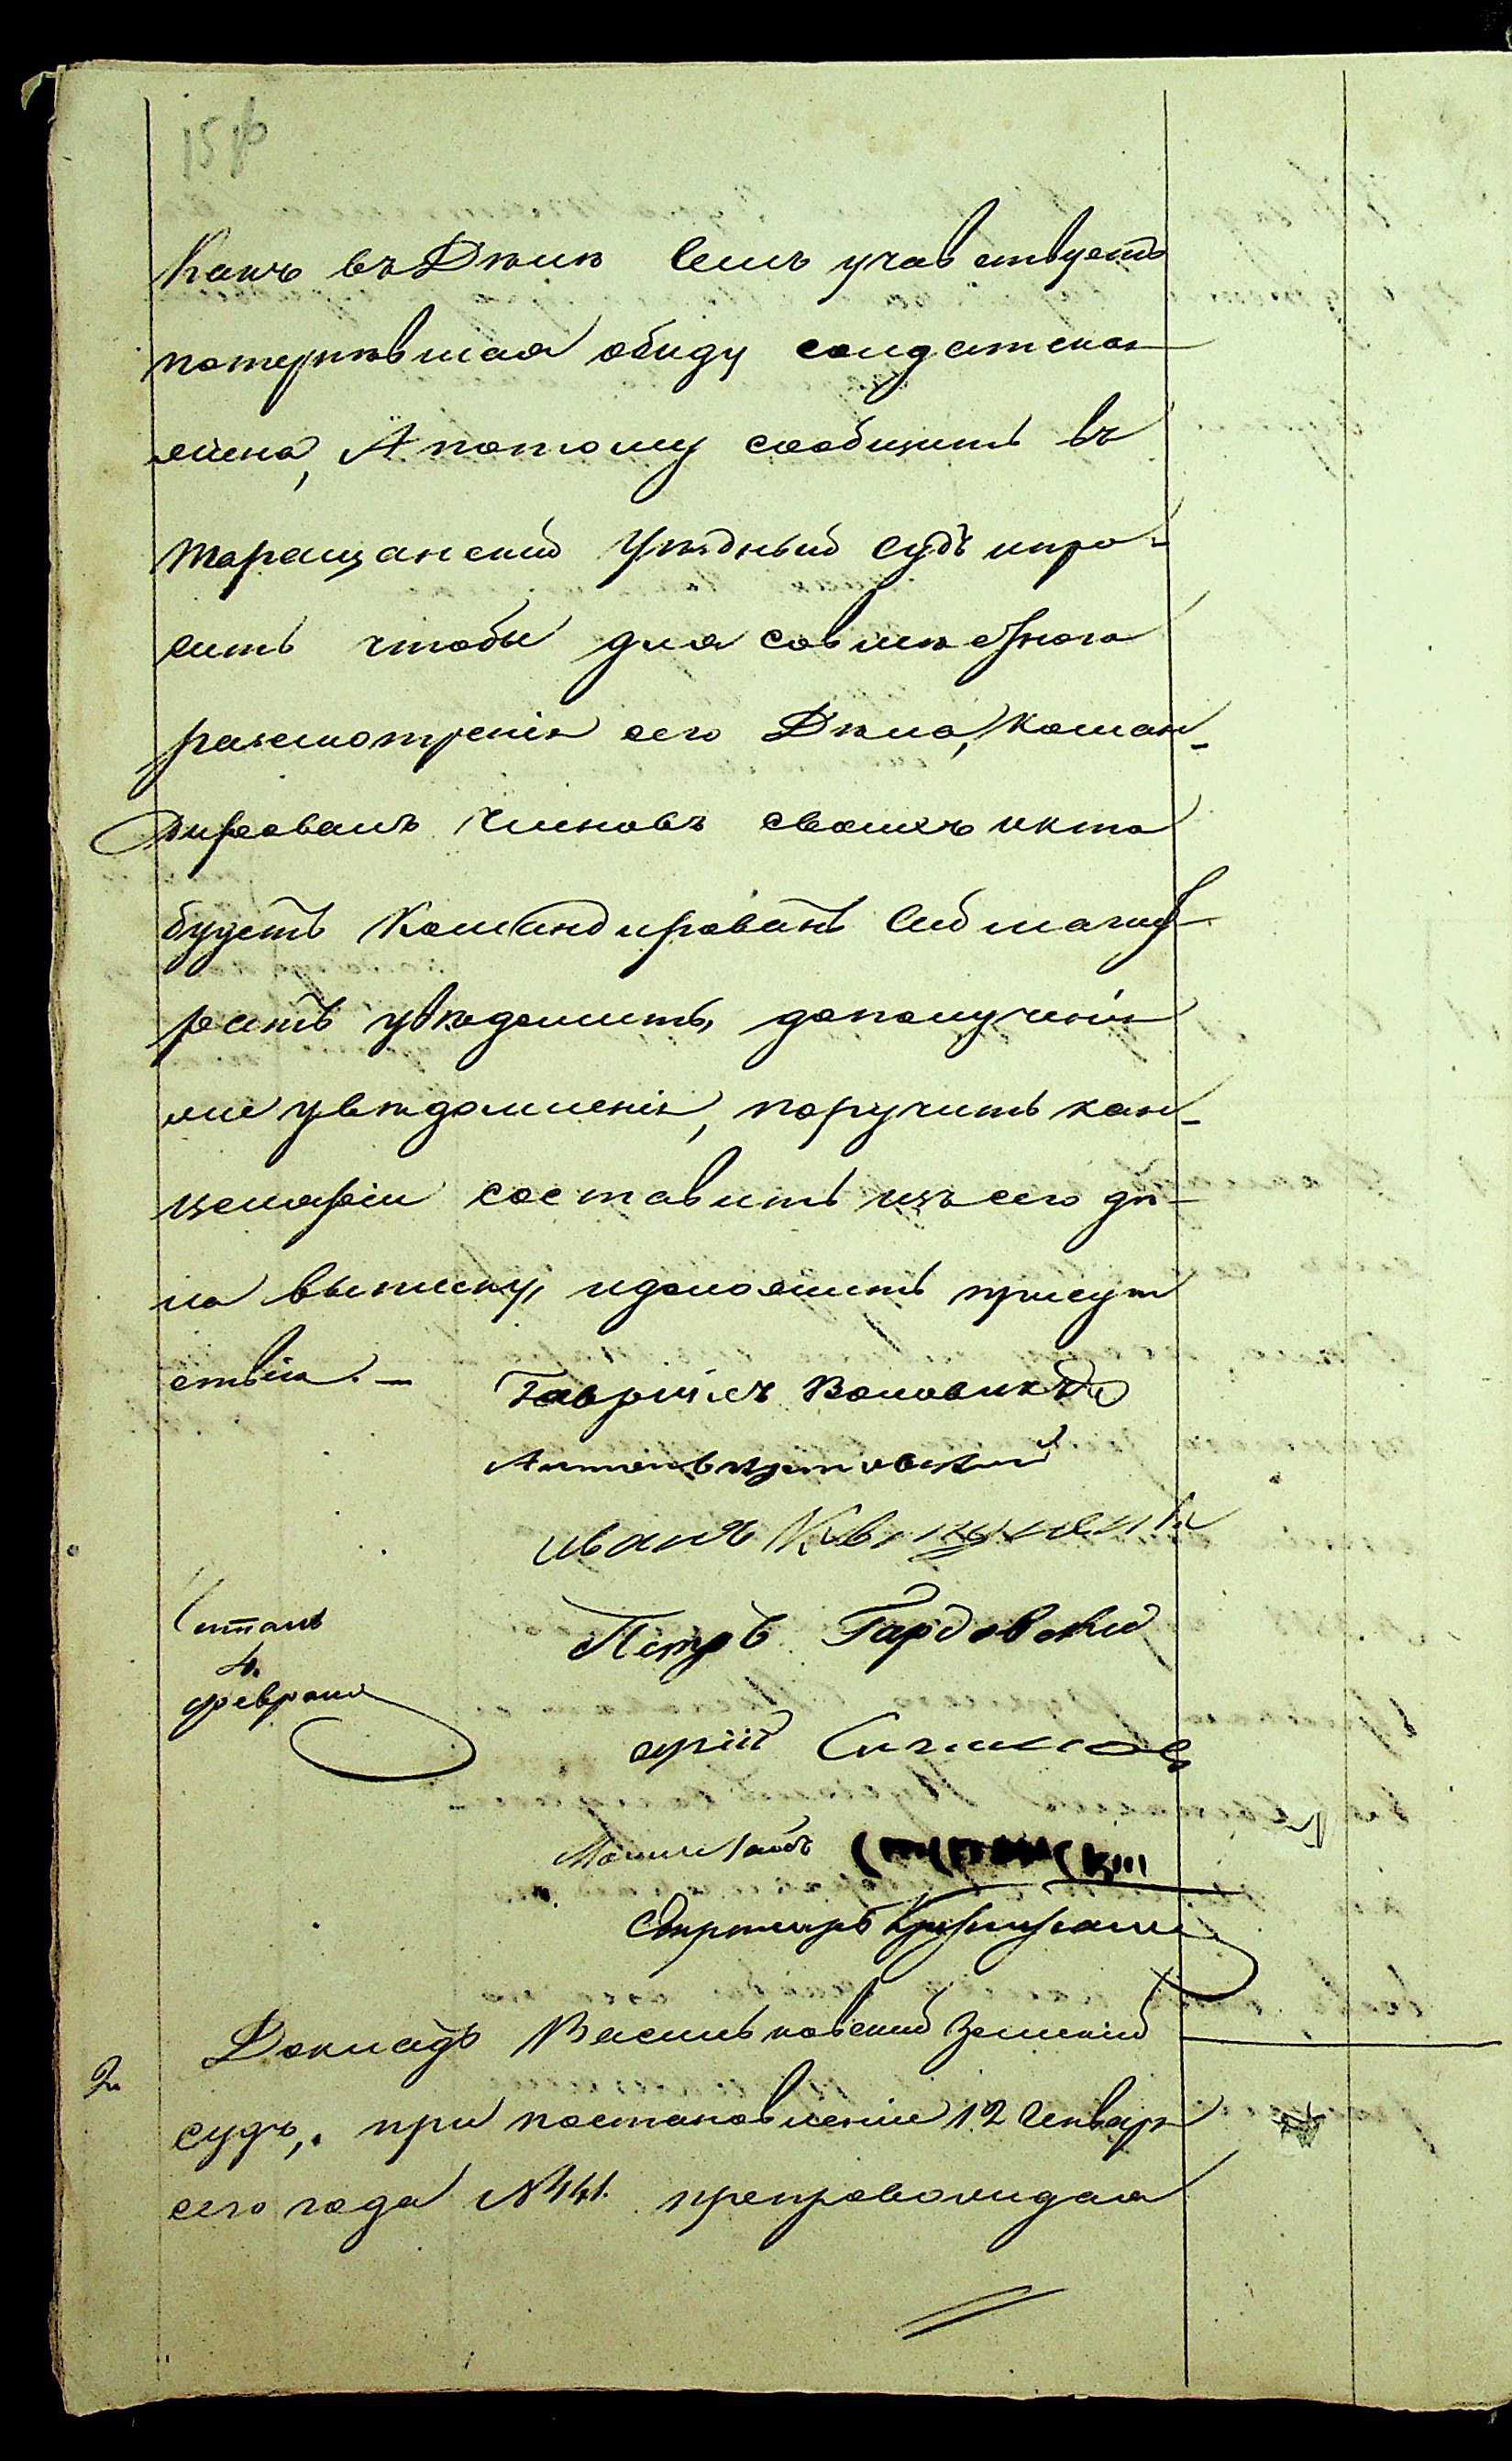 Какъ въ Дѣлѣ Семъ учавствуетъ
потерпѣвшая обиду солдатская
жена, А потому сообщить въ
Таращанский Уѣздный судъ ипро-
сить чтобы для совмѣстнаго
разсмотрѣнія сего Дѣла, коман-
дировалъ Членовъ своихъ икто
будетъ Командированъ Сей магист
ратъ увѣдомить, дополученія
же увѣдомленія, поручить кан-
целяріи составить изъ сего дѣ-
ла выписку идоложить присут
ствію. —
Гавріилъ Воловикъ
Антонъ
иванъ
Петръ Гардовский
Читалъ
4.
февраля
юрій
Секретарь
2. Докладъ Васильковский Земский
судъ, при постановленіи 12 Генваря
сего года №141. препровождая